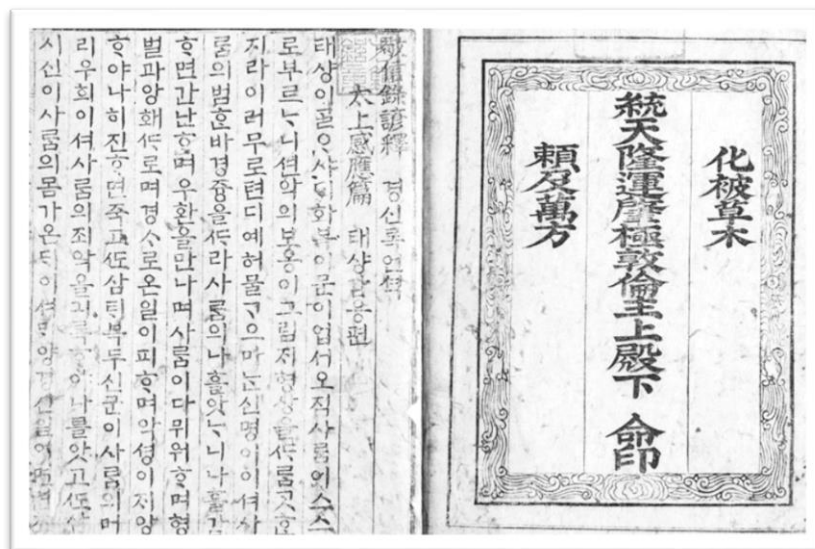 化被草木
統天隆運肇極敦倫主上殿下 命印
賴及萬方
敬信錄諺釋 경신록언셕
太上感應篇 태샹감응편
태샹이ᄀᆞᆯᄋᆞ샤ᄃᆡ화복이문이업서오직사ᄅᆞᆷ에스스
로부르ᄂᆞ니션악의보응이그림ᄌᆡ형상을ᄯᆞ룸ᄀᆞᆺᄒᆞᆫ
지라이러무로텬디예허물ᄀᆞ으마ᄂᆞᆫ신명이이셔사
ᄅᆞᆷ의범ᄒᆞᆫ바경즁을ᄯᆞ라사ᄅᆞᆷ의나흘앗ᄂᆞ니나흘감
ᄒᆞ면간난ᄒᆞ며우환을만나며사ᄅᆞᆷ이다뮈워ᄒᆞ며형
벌과앙화ᄯᆞ로며경ᄉᆞ로온일이피ᄒᆞ며악셩이ᄌᆡ앙
ᄒᆞ야나히진ᄒᆞ면죽고ᄯᅩ삼ᄐᆡ북두신군이사ᄅᆞᆷ의머
리우희이셔사ᄅᆞᆷ의죄악을긔록ᄒᆞ야나흘앗고ᄯᅩ삼
시신이사ᄅᆞᆷ의몸가온ᄃᆡ이셔ᄆᆡ양경신일에